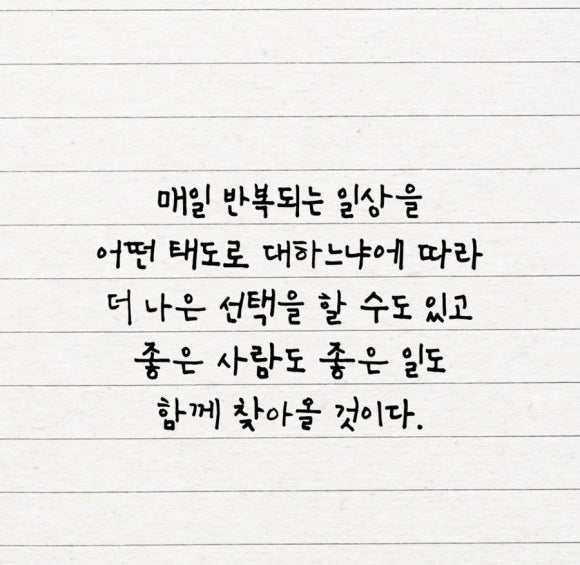 매일 반복되는 일상을
어떤 태도로 대하느냐에 따라
더 나은 선택을 할 수도 있고
좋은 사람도 좋은 일도
함께 찾아올 것이다.